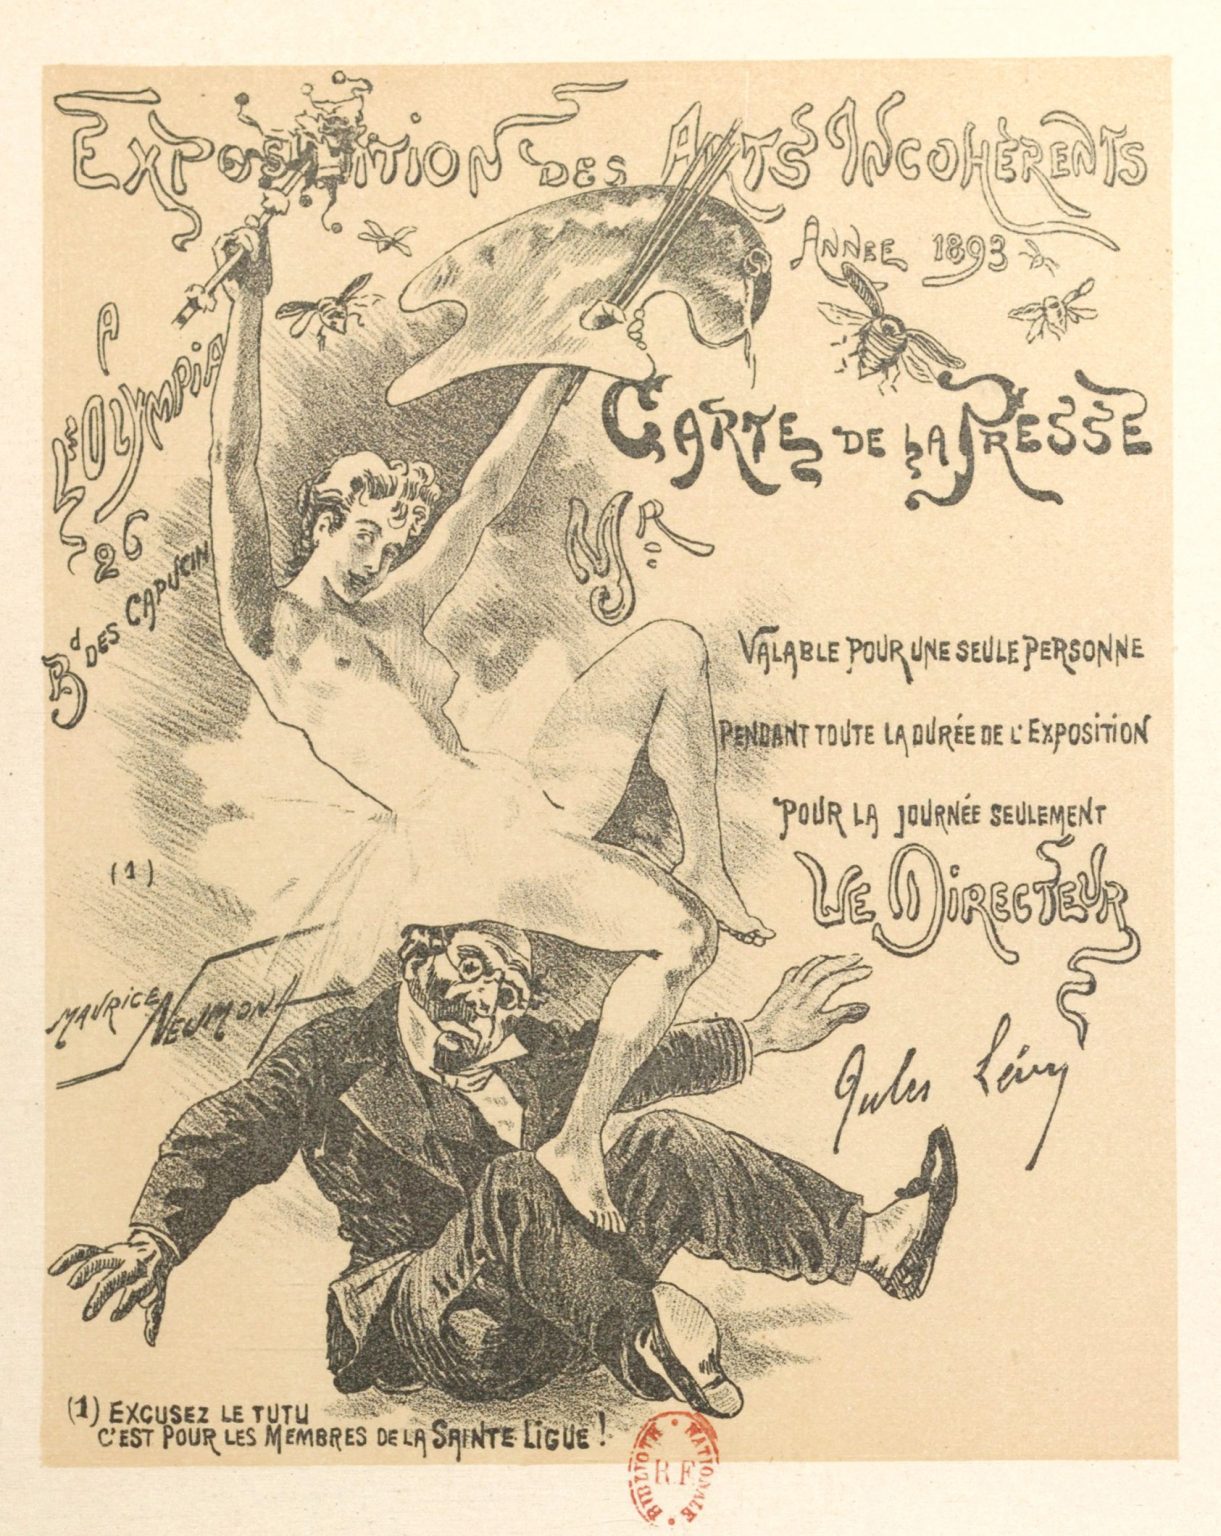 EXPOSITION DES ARTS INCOHÈRENTS
ANNÉE 1893
A
L'OLYMPIA
26
Bd DES CAPUCIN
CARTE DE LA PRESSE
MR
VALABLE POUR UNE SEULE PERSONNE
PENDANT TOUTE LA DURÉE DE L'EXPOSITION
POUR LA JOURNÉE SEULEMENT
LE DIRECTEUR
Jules Lévy
(1)
MAURICE NEUMONT
(1) EXCUSEZ LE TUTU
C'EST POUR LES MEMBRES DE LA SAINTE LIGUE !
BIBLIOTH NATIONALE
R F